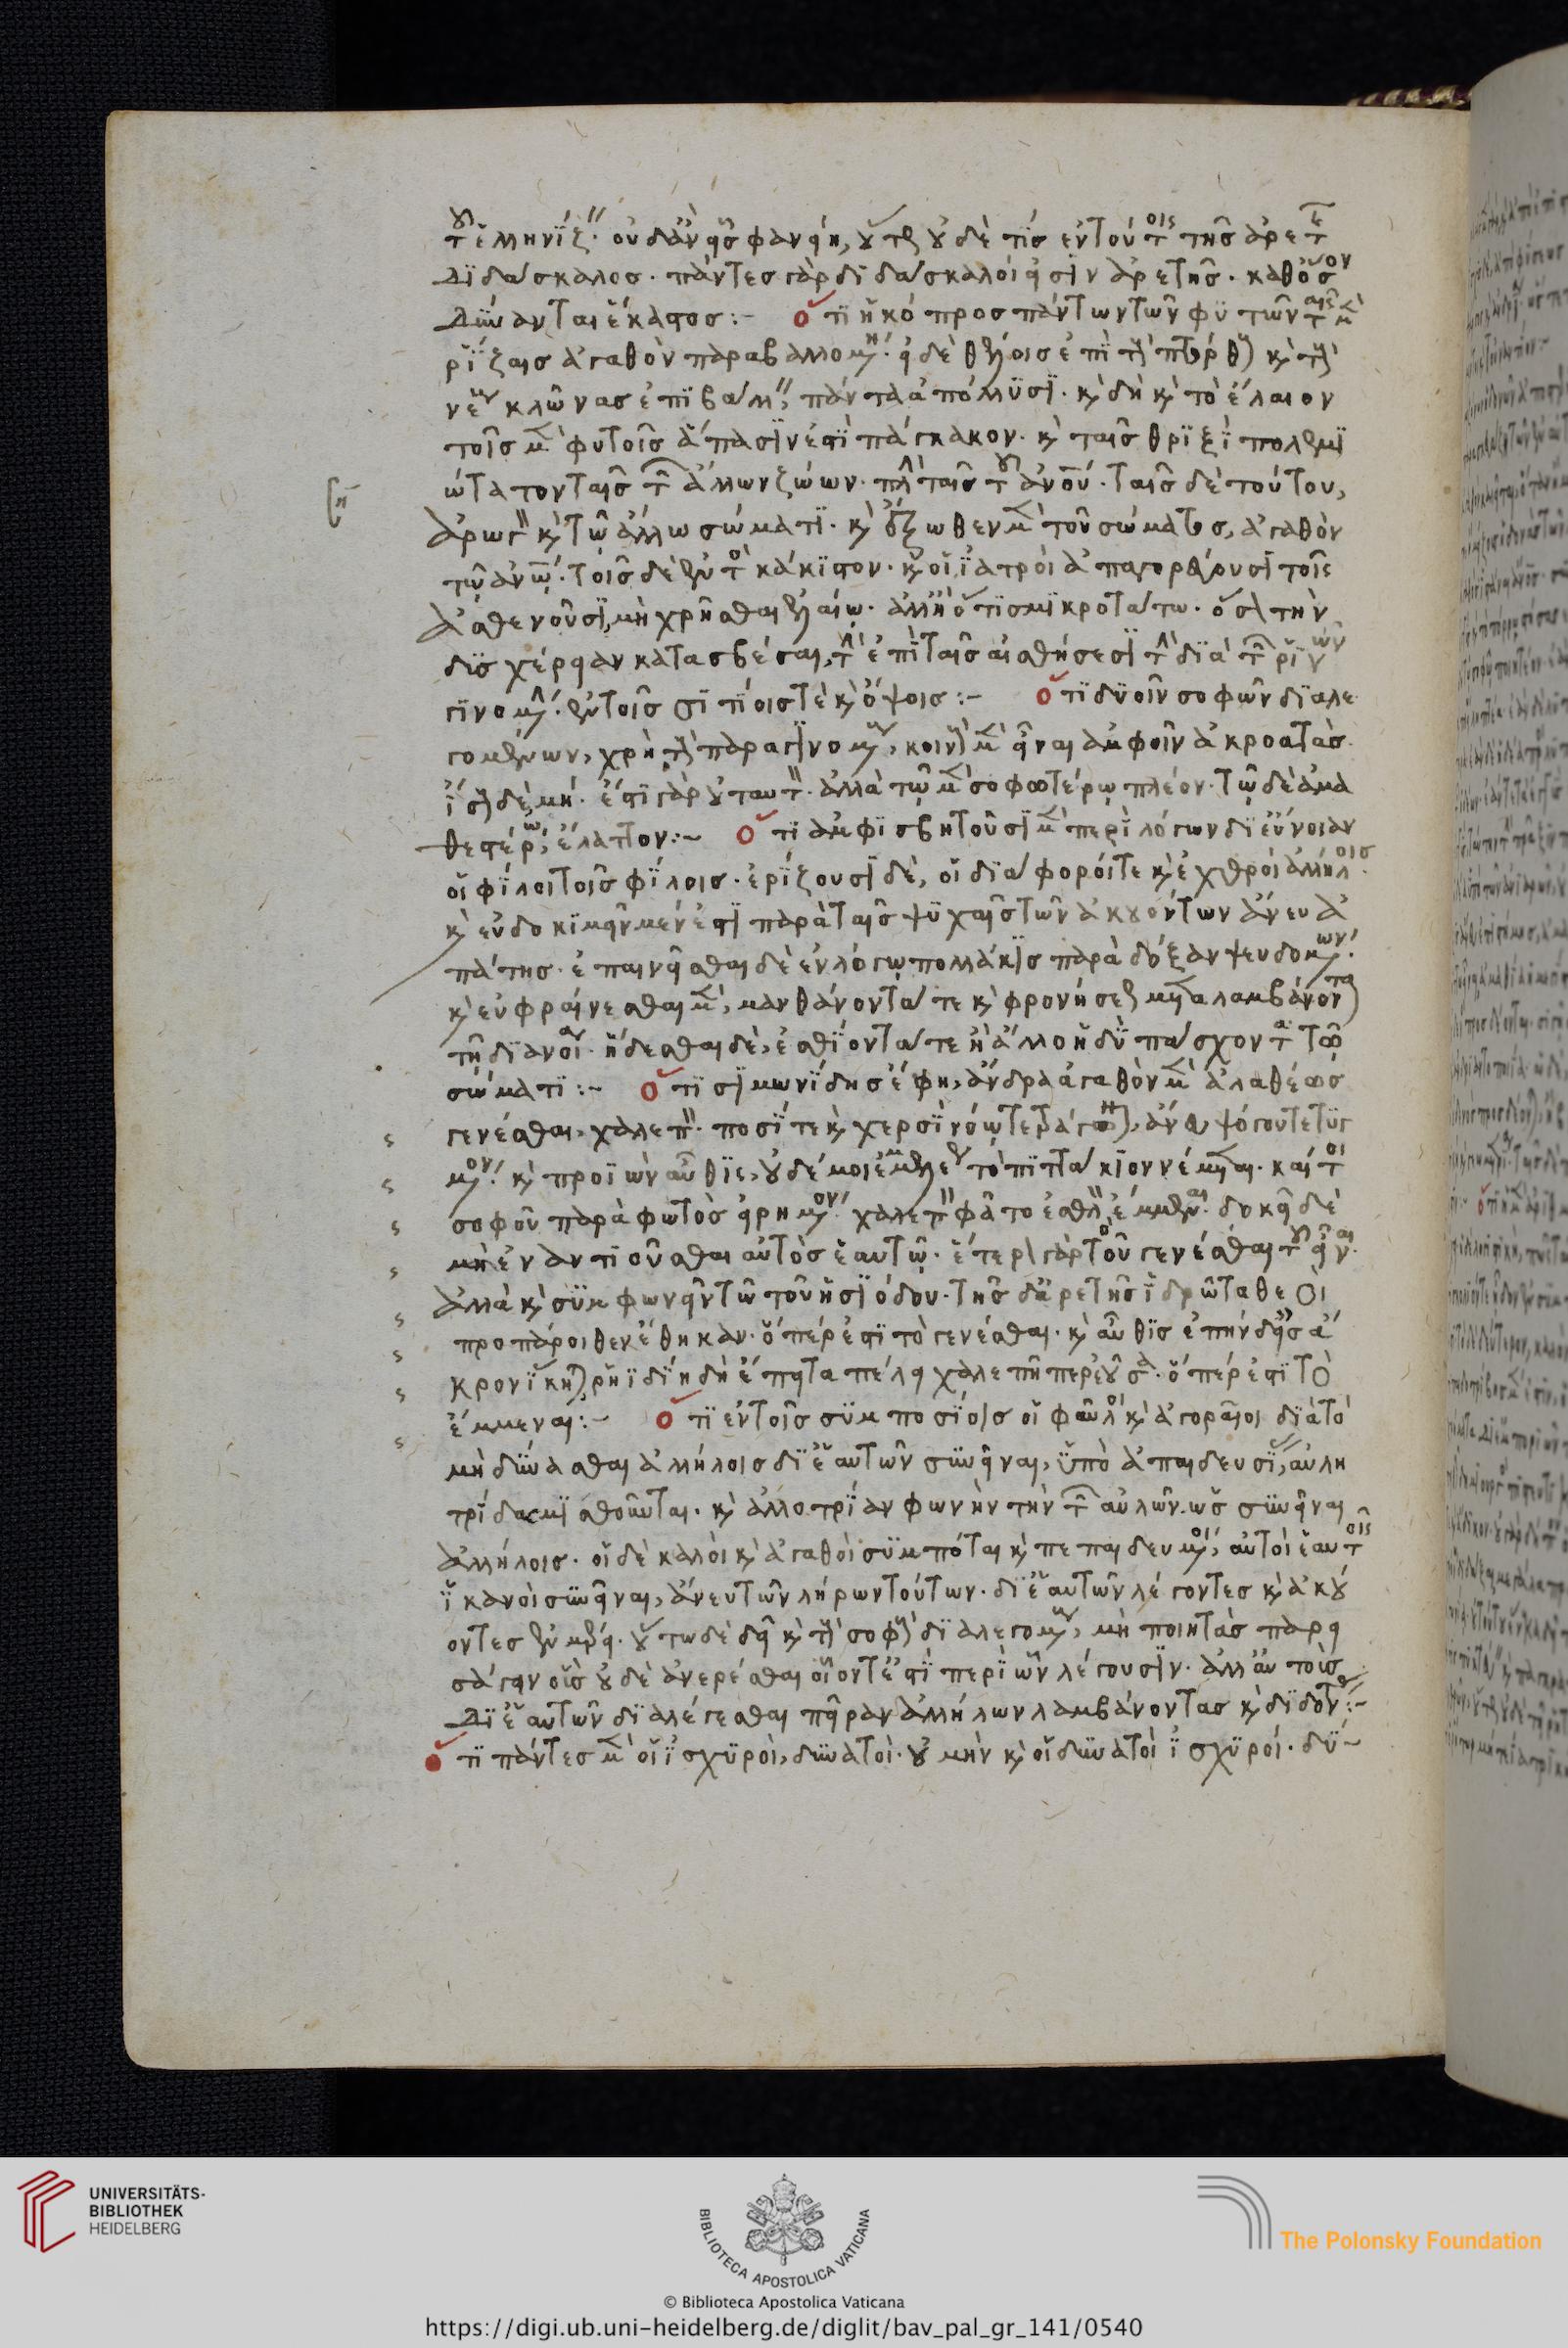 τοῦ ἑλληνίζειν· οὐδ' ἂν εἷς φανείη, οὕτως οὐδέ τις ἐν τούτοις τῆς ἀρετῆς
διδάσκαλος· πάντες γὰρ διδάσκαλοί εἰσιν ἀρετῆς· καθόσον
δύνανται ἕκαστος:– ὅτι ἡ κόπρος πάντων τῶν φυτῶν ταῖς μὲν
ῥίζαις ἀγαθὸν παραβαλλομένη· εἰ δὲ θέλοις ἐπὶ τοὺς πτόρθους καὶ τοὺς
νέους κλῶνας ἐπιβάλλειν, πάντα ἀπόλλυσι· καὶ δὴ καὶ τὸ ἔλαιον
τοῖς μὲν φυτοῖς ἅπασίν ἐστι πάγκακον· καὶ ταῖς θριξὶ πολεμι
ώτατον ταῖς τῶν ἄλλων ζώων· πλὴν ταῖς τοῦ ἀνθρώπου· ταῖς δὲ τούτου,
ἀρωγὸν καὶ τῷ ἄλλω σώματι· καὶ ἔξωθεν μὲν τοῦ σώματος, ἀγαθὸν
τῷ ἀνθρώπῳ· τοῖς δὲ ἐντὸς κάκιστον· καὶ οἱ ἰατροὶ ἀπαγορεύουσι τοῖς
ἀσθενοῦσι, μὴ χρῆσθαι ἐλαίῳ· ἀλλ' ἢ ὅτι σμικροτάτω· ὅσον τὴν
δυσχέρειαν κατασβέσαι, τὴν ἐπὶ ταῖς αἰσθήσεσι τὴν διὰ τῶν ῥινῶν
γινομένην· ἐν τοῖς σιτίοις τε καὶ ὄψοις:– ὅτι δυοῖν σοφῶν διαλε
γομένων, χρὴ τοὺς παραγινομένους, κοινοὺς μὲν εἶναι ἀμφοῖν ἀκροατὰς
ἴσους δὲ μή· ἔστι γὰρ οὐ ταυτόν· ἀλλὰ τῷ μὲν σοφωτέρῳ πλέον· τῷ δὲ ἀμα
θεστέρῳ, ἔλαττον:– ὅτι ἀμφισβητοῦσι μὲν περὶ λόγων δι εὔνοιαν
οἱ φίλοι τοῖς φίλοις· ἐρίζουσι δὲ, οἱ διάφοροί τε καὶ ἐχθροὶ ἀλλήλοις·
καὶ εὐδοκιμεῖν μέν ἐστι παρὰ ταῖς ψυχαῖς τῶν ἀκουόντων ἄνευ ἀ
πάτης· ἐπαινεῖσθαι δὲ ἐν λόγῳ πολλάκις παρὰ δόξαν ψευδομένων·
καὶ εὐφραίνεσθαι μὲν, μανθάνοντά τε καὶ φρονήσεως μεταλαμβάνοντα
τῇ διανοίᾳ· ἥδεσθαι δὲ, ἐσθίοντά τε ἢ ἄλλο ἡδὺ πάσχοντα τῷ
σώματι:– ὅτι σιμωνίδης ἔφη, ἄνδρα ἀγαθὸν μὲν ἀλαθέως
γενέσθαι, χαλεπόν· ποσί τε καὶ χερσὶ νόῳ τε τετράγωνον, ἄνευ ψόγου τετυγ
μένον· καὶ προϊὼν αὖθις, οὐδέ μοι ἐμμελέως τὸ πιττάκιον νέμεται· καίτοι
σοφοῦ παρὰ φωτὸς εἰρημένον· χαλεπὸν φᾶτο ἐσθλὸν ἔμμεναι· δοκεῖ δὲ
μὴ ἐναντιοῦσθαι αὐτὸς ἑαυτῷ· ἕτερον γὰρ τοῦ γενέσθαι τὸ εἶναι·
ἀλλὰ καὶ συμφωνεῖν τῷ τοῦ ἡσιόδου· τῆς δ' ἀρετῆς ἱδρῶτα θεοὶ
προπάροιθεν ἔθηκαν· ὅπέρ ἐστι τὸ γενέσθαι· καὶ αὖθις ἐπὴν δ' εἰς ἄ
κρον ἵκηται ῥηϊδίη δὴ ἔπειτα πέλει χαλεπή περ ἐοῦσα· ὅπέρ ἐστι τὸ
ἔμμεναι:– ὅτι ἐν τοῖς συμποσίοις οἱ φαῦλοι καὶ ἀγοραῖοι διὰ τὸ
μὴ δύνασθαι ἀλλήλοις δι ἑαυτῶν συνεῖναι, ὑπὸ ἀπαιδευσίας, αὐλη
τρίδας μισθοῦνται· καὶ ἀλλοτρίαν φωνὴν τὴν τῶν αὐλῶν ὡς συνεῖναι
ἀλλήλοις· οἱ δὲ καλοὶ καὶ ἀγαθοὶ συμπόται καὶ πεπαιδευμένοι, αὐτοὶ ἑαυτοῖς
ἱκανοὶ συνεῖναι, ἄνευ τῶν λήρων τούτων· δι ἑαυτῶν λέγοντες καὶ ἀκού
οντες ἐν μέρει· οὕτω δὲ δεῖ καὶ τοὺς σοφοὺς διαλεγομένους, μὴ ποιητὰς παρει
σάγειν οἷς οὐδὲ ἀνερέσθαι οἷόντέ ἐστι περὶ ὧν λέγουσιν· ἀλλ' ἐν τοῖς
δι ἑαυτῶν διαλέγεσθαι πεῖραν ἀλλήλων λαμβάνοντας καὶ διδόντας:–
ὅτι πάντες μὲν οἱ ἰσχυροὶ, δυνατοί· οὐ μὴν καὶ οἱ δυνατοὶ ἰσχυροί· δύ–
UNIVERSITÄTS-
BIBLIOTHEK
HEIDELBERG
BIBLIOTECA APOSTOLICA VATICANA
The Polonsky Foundation
© Biblioteca Apostolica Vaticana
https://digi.ub.uni-heidelberg.de/diglit/bav_pal_gr_141/0540